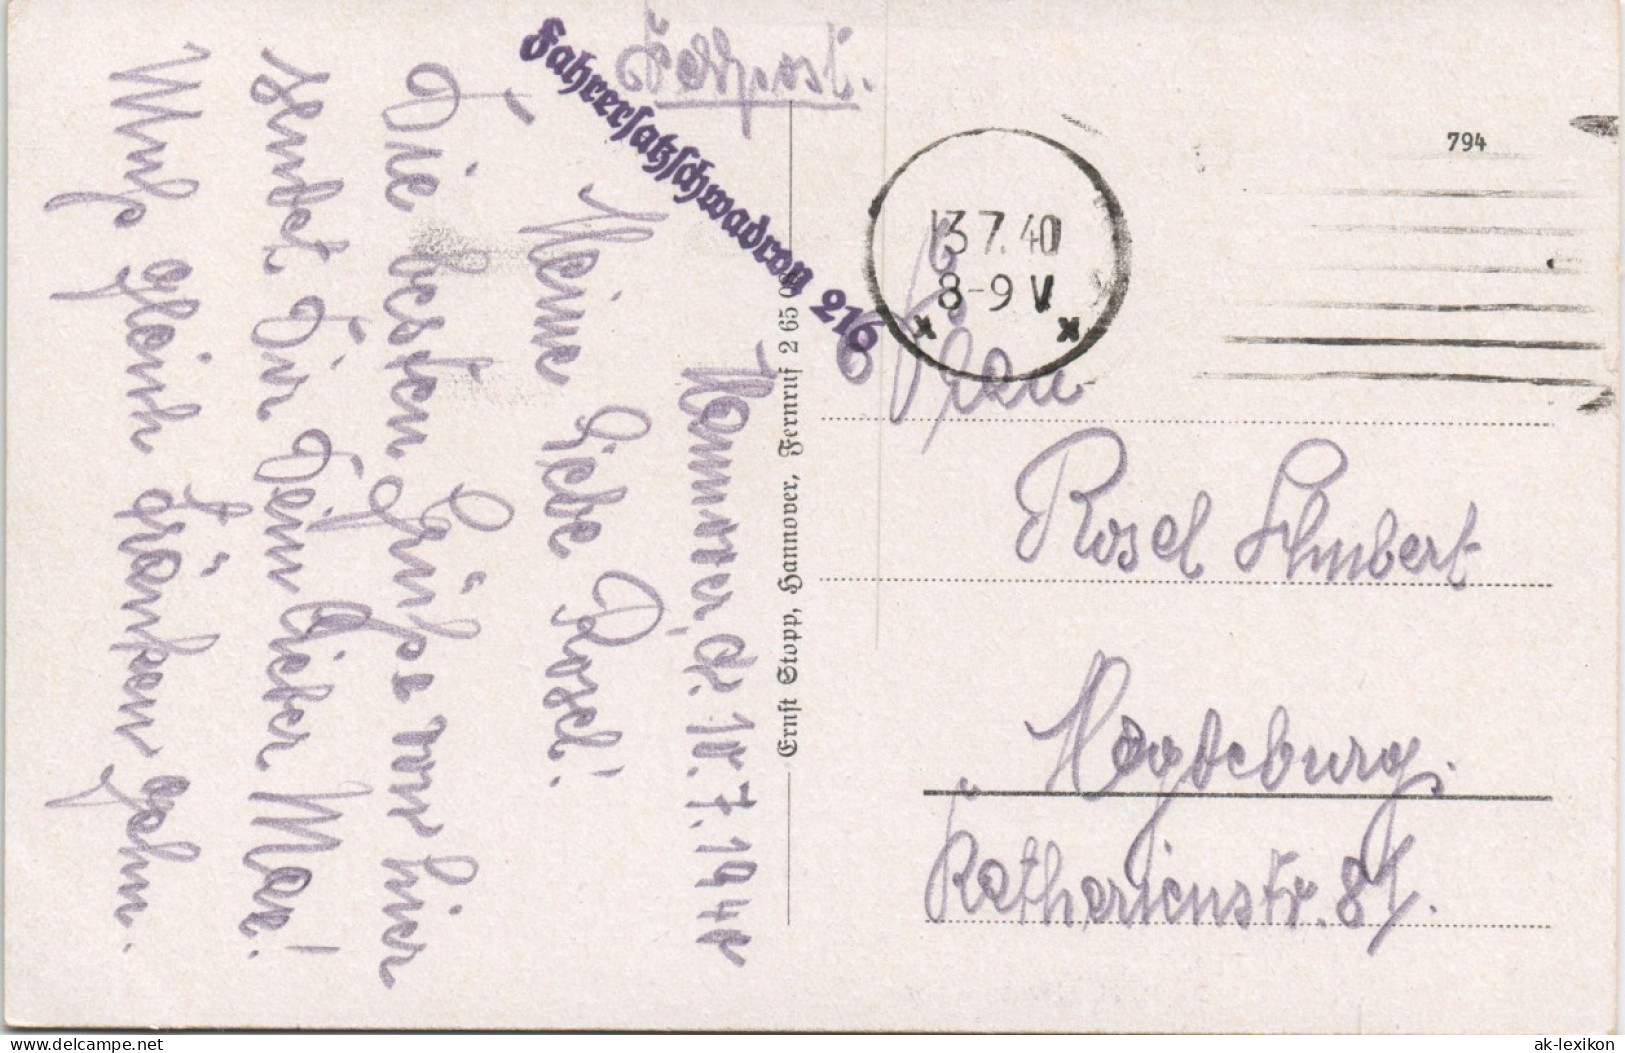 Feldpost.
Fahrersatzschwadron 216
13.7.40
8-9 V
794
Hannover, d. 10.7.1940
Meine liebe Rosel!
Die besten Grüße von hier
sendet Dir Dein lieber Max!
Muß gleich tränken gehn.
Ernst Stopp, Hannover, Fernruf 2 65
Frau
Rosel Schubert
Magdeburg.
Katharienstr. 8
delcampe.net
ak-lexikon